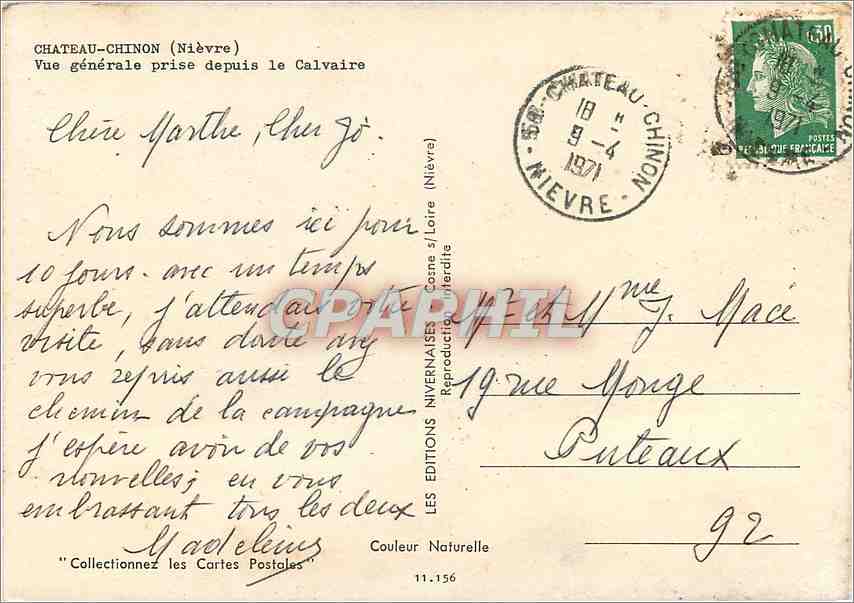 CHATEAU-CHINON (Nièvre)
Vue générale prise depuis le Calvaire
Chère Marthe, Cher Jo.
Nous sommes ici pour
10 jours. avec un temps
superbe, j'attendais votre
visite, sans doute avez
vous repris aussi le
chemin de la campagne
j'espère avoir de vos
nouvelles; en vous
embrassant tous les deux
Madeleine
"Collectionnez les Cartes Postales"
Couleur Naturelle
11.156
LES EDITIONS NIVERNAISES Cosne s/Loire (Nièvre)
Reproduction interdite
58-CHATEAU-CHINON
18 H
9-4
1971
NIEVRE
0,30
POSTES
REPUBLIQUE FRANÇAISE
CHATEAU-CHINON
18 H
9-4
1971
Mr et Mme J. Macé
19 rue Monge
Puteaux
92
CPARPHIL